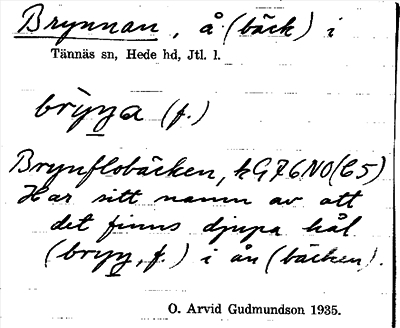 Brynnan, å (bäck) i
Tännäs sn, Hede hd, Jtl. l.
(f.)
Brynflobäcken, kG76NO(C5)
Har sitt namn av att
det finns djupa hål
(bryy, f.) i ån (bäcken).
O. Arvid Gudmundson 1935.